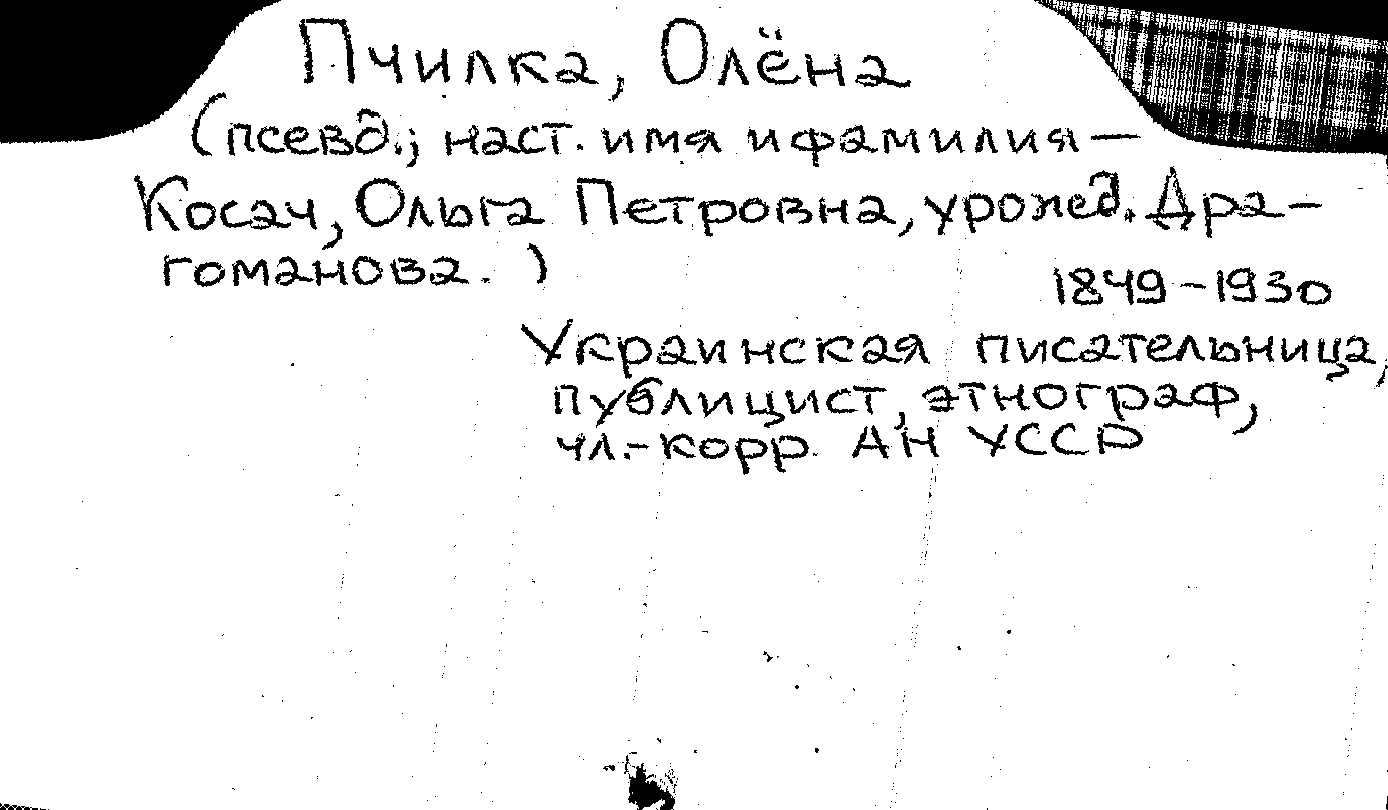 Пчилка, Олёна
(псевд.; наст. имя и фамилия —
Косач, Ольга Петровна, урожед. Дра-
гоманова. )
1849 - 1930
Украинская писательница,
публицист, этнограф,
чл.-корр. АН УССР